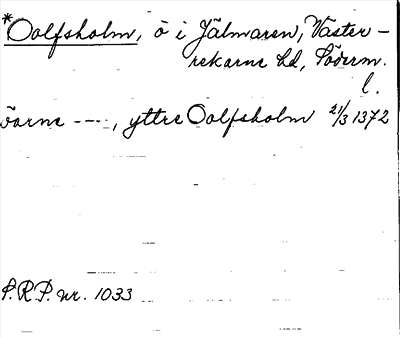 *Oolfsholm, ö i Jälmaren, Väster-
rekarne hd, Söderm.
l.
öarne ----, yttre Oolfsholm 21/3 1372
S.R.P. nr. 1033